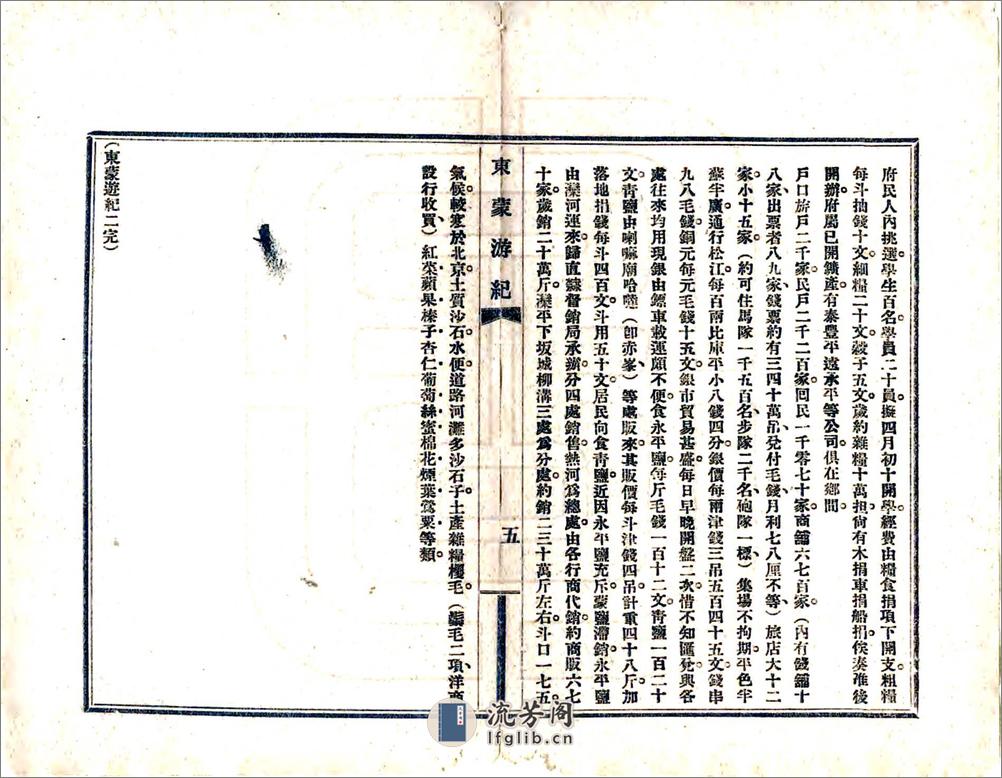 府民人內挑選學生百名學員二十員擬四月初十開學經費由糧食捐項下開支粗糧
每斗抽錢十文細糧二十文穀子五文歲約雜糧十萬担尙有木捐車捐船捐俟奏准後
開辦府屬已開鑛產有泰豐平遠永平等公司俱在鄉間
戶口旂戶二千家民戶二千二百家囘民一千零七十家商舖六七百家（內有錢舖十
八家出票者八九家錢票約有三四十萬吊兌付毛錢月利七八厘不等）旅店大十二
家小十五家（約可住馬隊一千五百名步隊二千名砲隊一標）集場不拘期平色半
蘇半廣通行松江每百兩比庫平小八錢四分銀價每兩津錢三吊五百四十五文錢串
九八毛錢銅元每元毛錢十五文銀市貿易甚盛每日早晚開盤二次惜不知匯兌與各
處往來均用現銀由鏢車載運頗不便食永平鹽每斤毛錢一百十二文靑鹽一百二十
文靑鹽由喇嘛廟哈噠（卽赤峯）等處販來其販價每斗津錢四吊計重四十八斤加
落地捐錢每斗四百文斗用五十文居民向食靑鹽近因永平鹽充斥蒙鹽滯銷永平鹽
由灤河運來歸直隸督銷局承辦分四處銷售熱河爲總處由各行商代銷約商販六七
十家歲銷二十萬斤灤平下坂城柳溝三處爲分處約銷二三十萬斤左右斗口一七五
東蒙游紀
五
氣候較寒於北京土質沙石水便道路河灘多沙石子土產雜糧櫻毛（羢毛二項洋商
設行收買）紅菜蘋果榛子杏仁葡萄絲蜜棉花煙葉鶯粟等類
（東蒙遊紀二完）
流芳阁
lfglib.cn